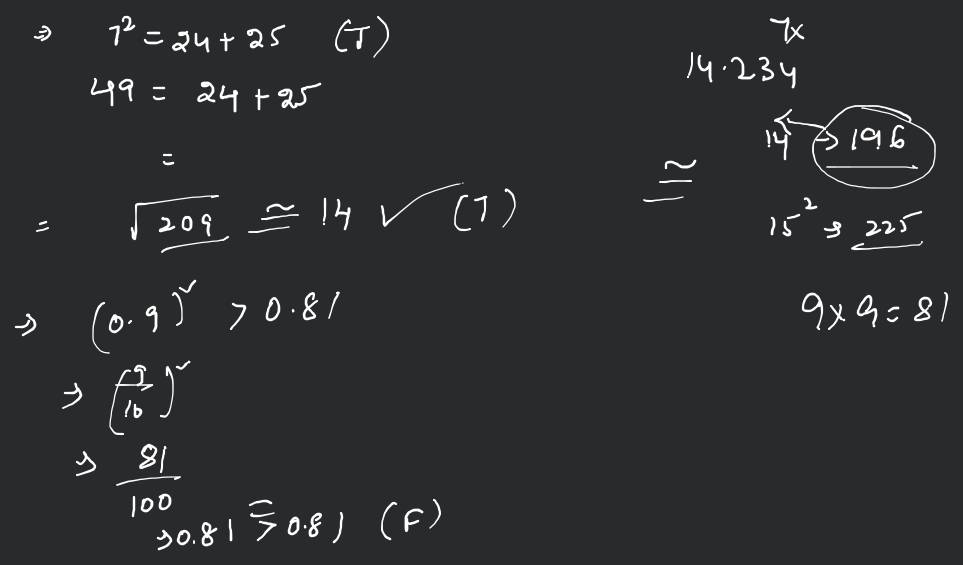 ⇒ 7² = 24 + 25 (T)
49 = 24 + 25
=
= √209 ≅ 14 ✓ (T)
⇒ (0.9)² > 0.81
⇒ (9/10)²
⇒ 81/100
→ 0.81 > 0.81 (F)
=
7x
14.234
14 → 196
≅
15² → 225
9 x 9 = 81